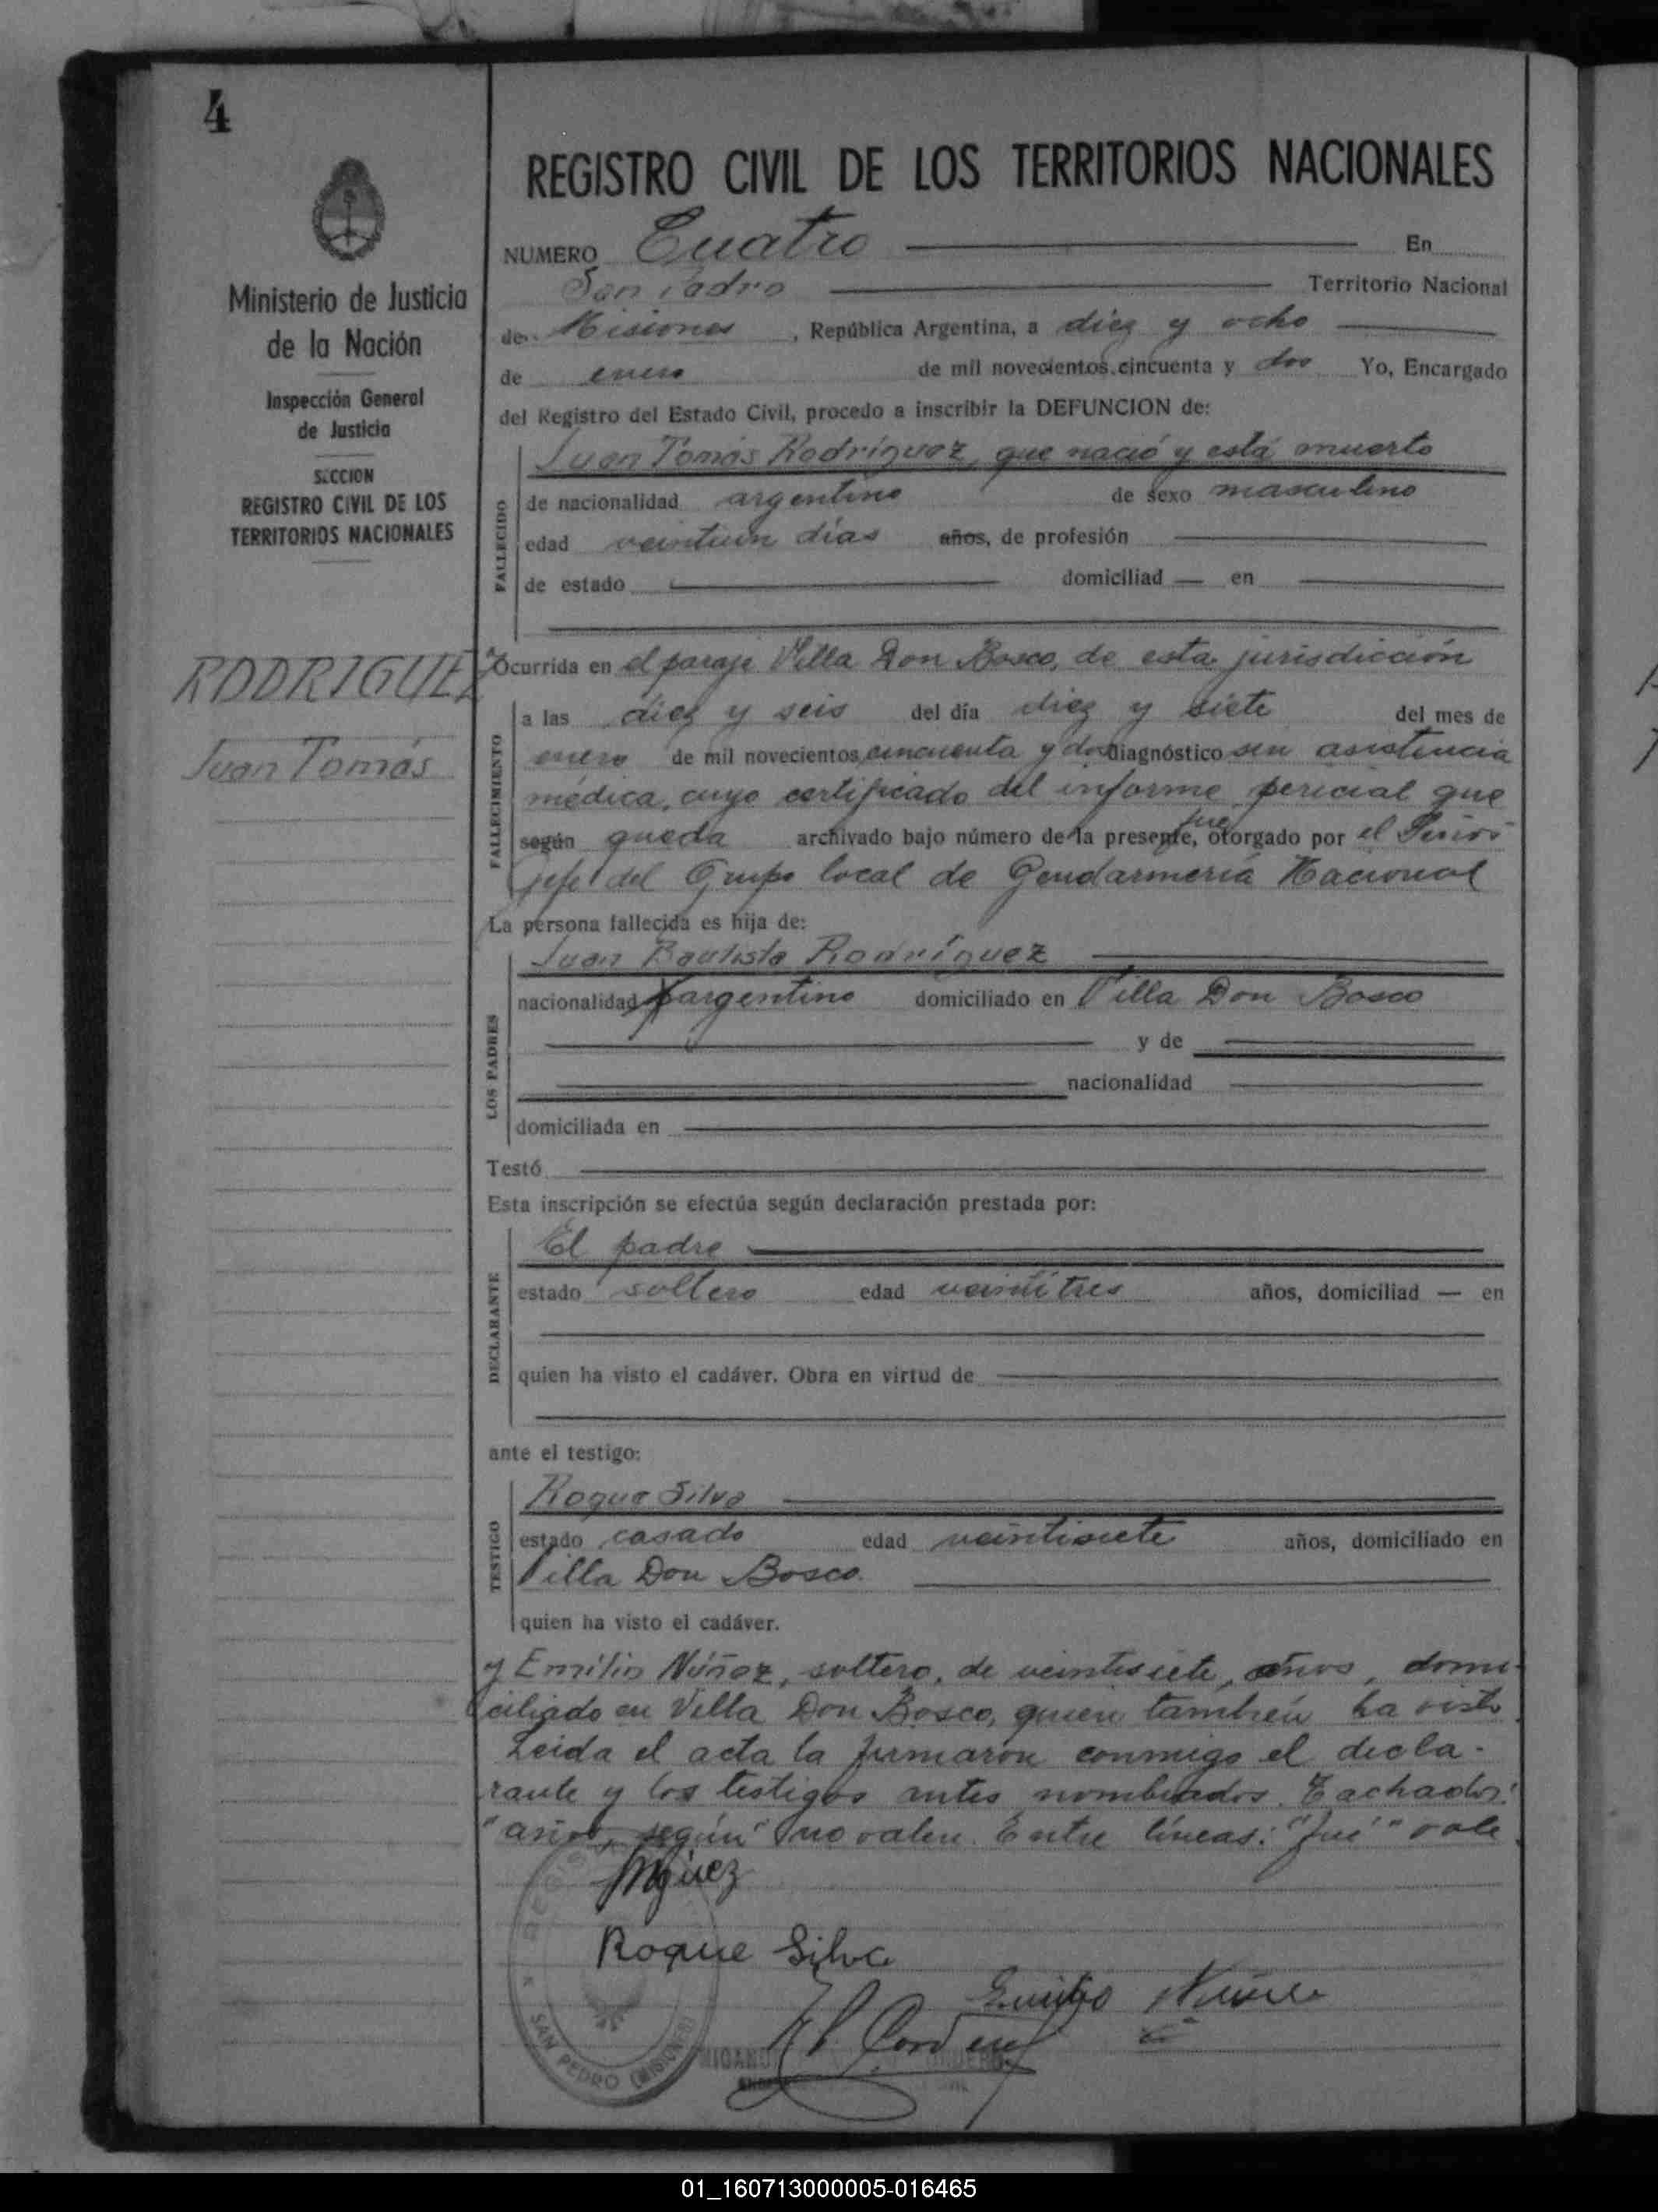 4
Ministerio de Justicia
de la Nación
Inspección General
de Justicia
SECCION
REGISTRO CIVIL DE LOS
TERRITORIOS NACIONALES
RODRIGUEZ
Juan Tomás
REGISTRO CIVIL DE LOS TERRITORIOS NACIONALES
NUMERO Cuatro En
San Pedro Territorio Nacional
de Misiones, República Argentina, a diez y ocho
de enero de mil novecientos cincuenta y dos Yo, Encargado
del Registro del Estado Civil, procedo a inscribir la DEFUNCION de:
FALLECIDO
Juan Tomás Rodríguez, que nació y está muerto
de nacionalidad argentino de sexo masculino
edad veintiún días años, de profesión
de estado domiciliad — en
Ocurrida en el paraje Villa Don Bosco, de esta jurisdicción
FALLECIMIENTO
a las diez y seis del día diez y siete del mes de
enero de mil novecientos cincuenta y dos diagnóstico sin asistencia
médica, cuyo certificado del informe pericial que
según queda archivado bajo número de la presente, fué otorgado por el Señor
jefe del Grupo local de Gendarmería Nacional
La persona fallecida es hija de:
LOS PADRES
Juan Bautista Rodríguez
nacionalidad argentino domiciliado en Villa Don Bosco
y de
nacionalidad
domiciliada en
Testó
Esta inscripción se efectúa según declaración prestada por:
DECLARANTE
El padre
estado soltero edad veintitres años, domiciliad — en
quien ha visto el cadáver. Obra en virtud de
ante el testigo:
TESTIGO
Roque Silva
estado casado edad veintisiete años, domiciliado en
Villa Don Bosco
quien ha visto el cadáver.
y Emilio Núñez, soltero, de veintisiete años, domi-
ciliado en Villa Don Bosco, quien también ha visto.
Leída el acta la firmaron conmigo el decla-
rante y los testigos antes nombrados. Tachados:
"años, según" no valen. Entre líneas: "fué" vale.
Roque Silva
Emilio Núñez
SAN PEDRO (MISIONES)
01_160713000005-016465